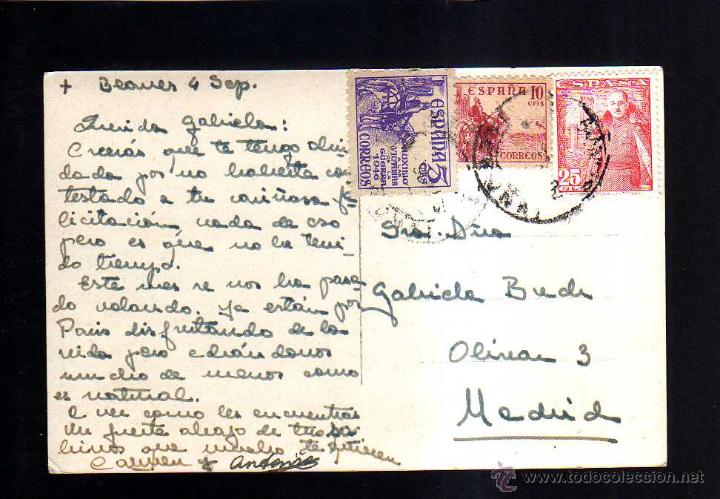 + Beaves 4 Sep.
Querida Gabriela:
Creerás que te tengo olvi
dada por no haberte con
testado a tu cariñosa fe
licitación, nada de eso
pero es que no he teni
do tiempo.
Este mes se nos ha pasa
do volando. Ya están por
Paris disfrutando de la
vida pero echándonos
mucho de menos como
es natural.
A ver como les encuentras
Un fuerte abrazo de tus
que mucho te quieren
Carmen y Antonio
ESPAÑA
5
CTS
AUXILIO
VICTIMAS
DE
GUERRA
1946
CORREOS
ESPAÑA
10
CTS
CORREOS
ESPAÑA
25
CTS
Sra. Dña
Gabriela
Olivar 3
Madrid
todocoleccion
www.todocoleccion.net